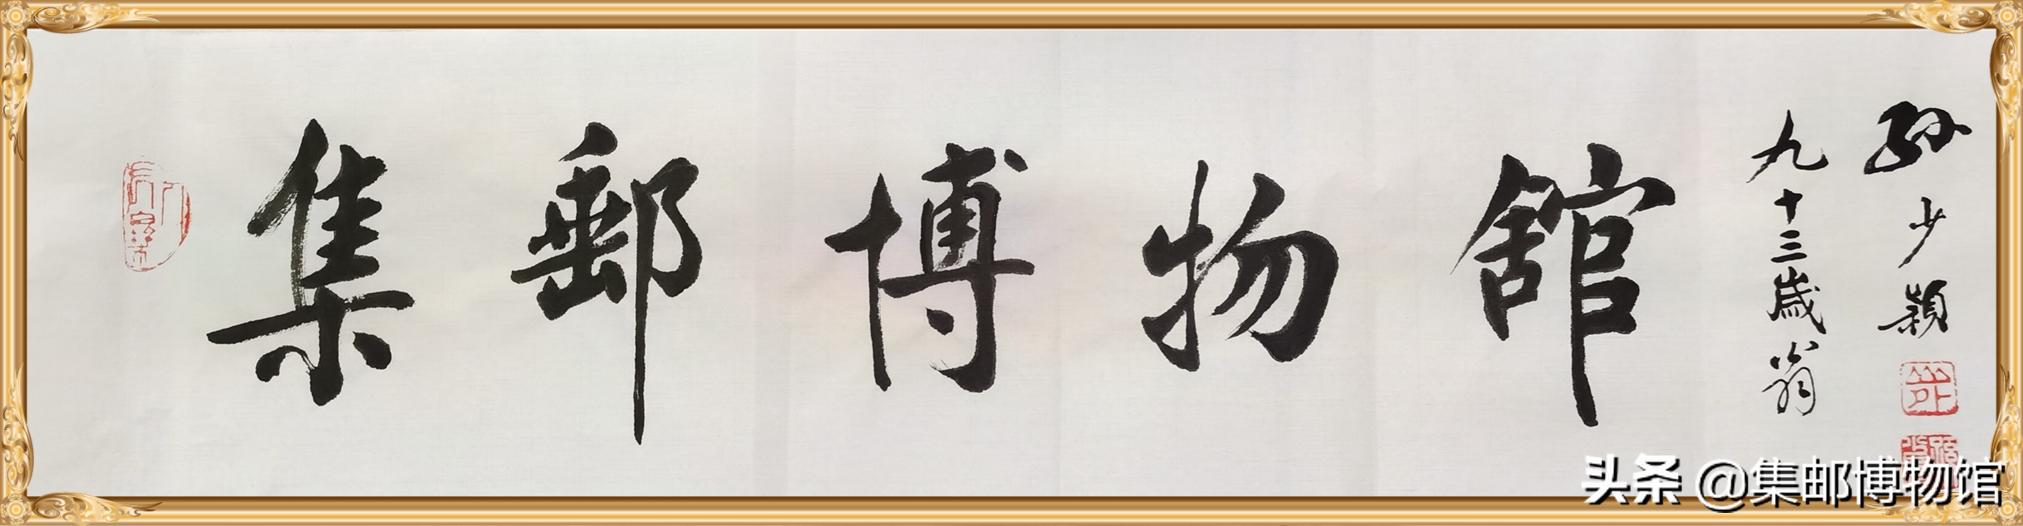 集郵博物舘
九十三歲翁
孙少頴
头条 @集邮博物馆